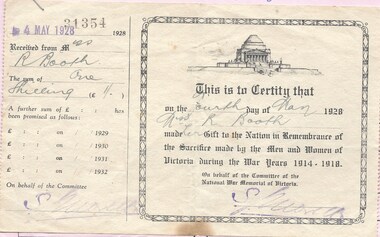 31354
4 MAY 1928 1928
Received from Mrs
R Booth
The sum of One
Shilling (£ )
A further sum of £ : : has
been promised as follows:
£ : : on 1929
£ : : on 1930
£ : : on 1931
£ : : on 1932
On behalf of the Committee
This is to Certify that
on the Fourth day of May 1928
R Booth
made Gift to the Nation in Remembrance of
the Sacrifice made by the Men and Women of
Victoria during the War Years 1914-1918.
On behalf of the Committee of the
National War Memorial of Victoria.